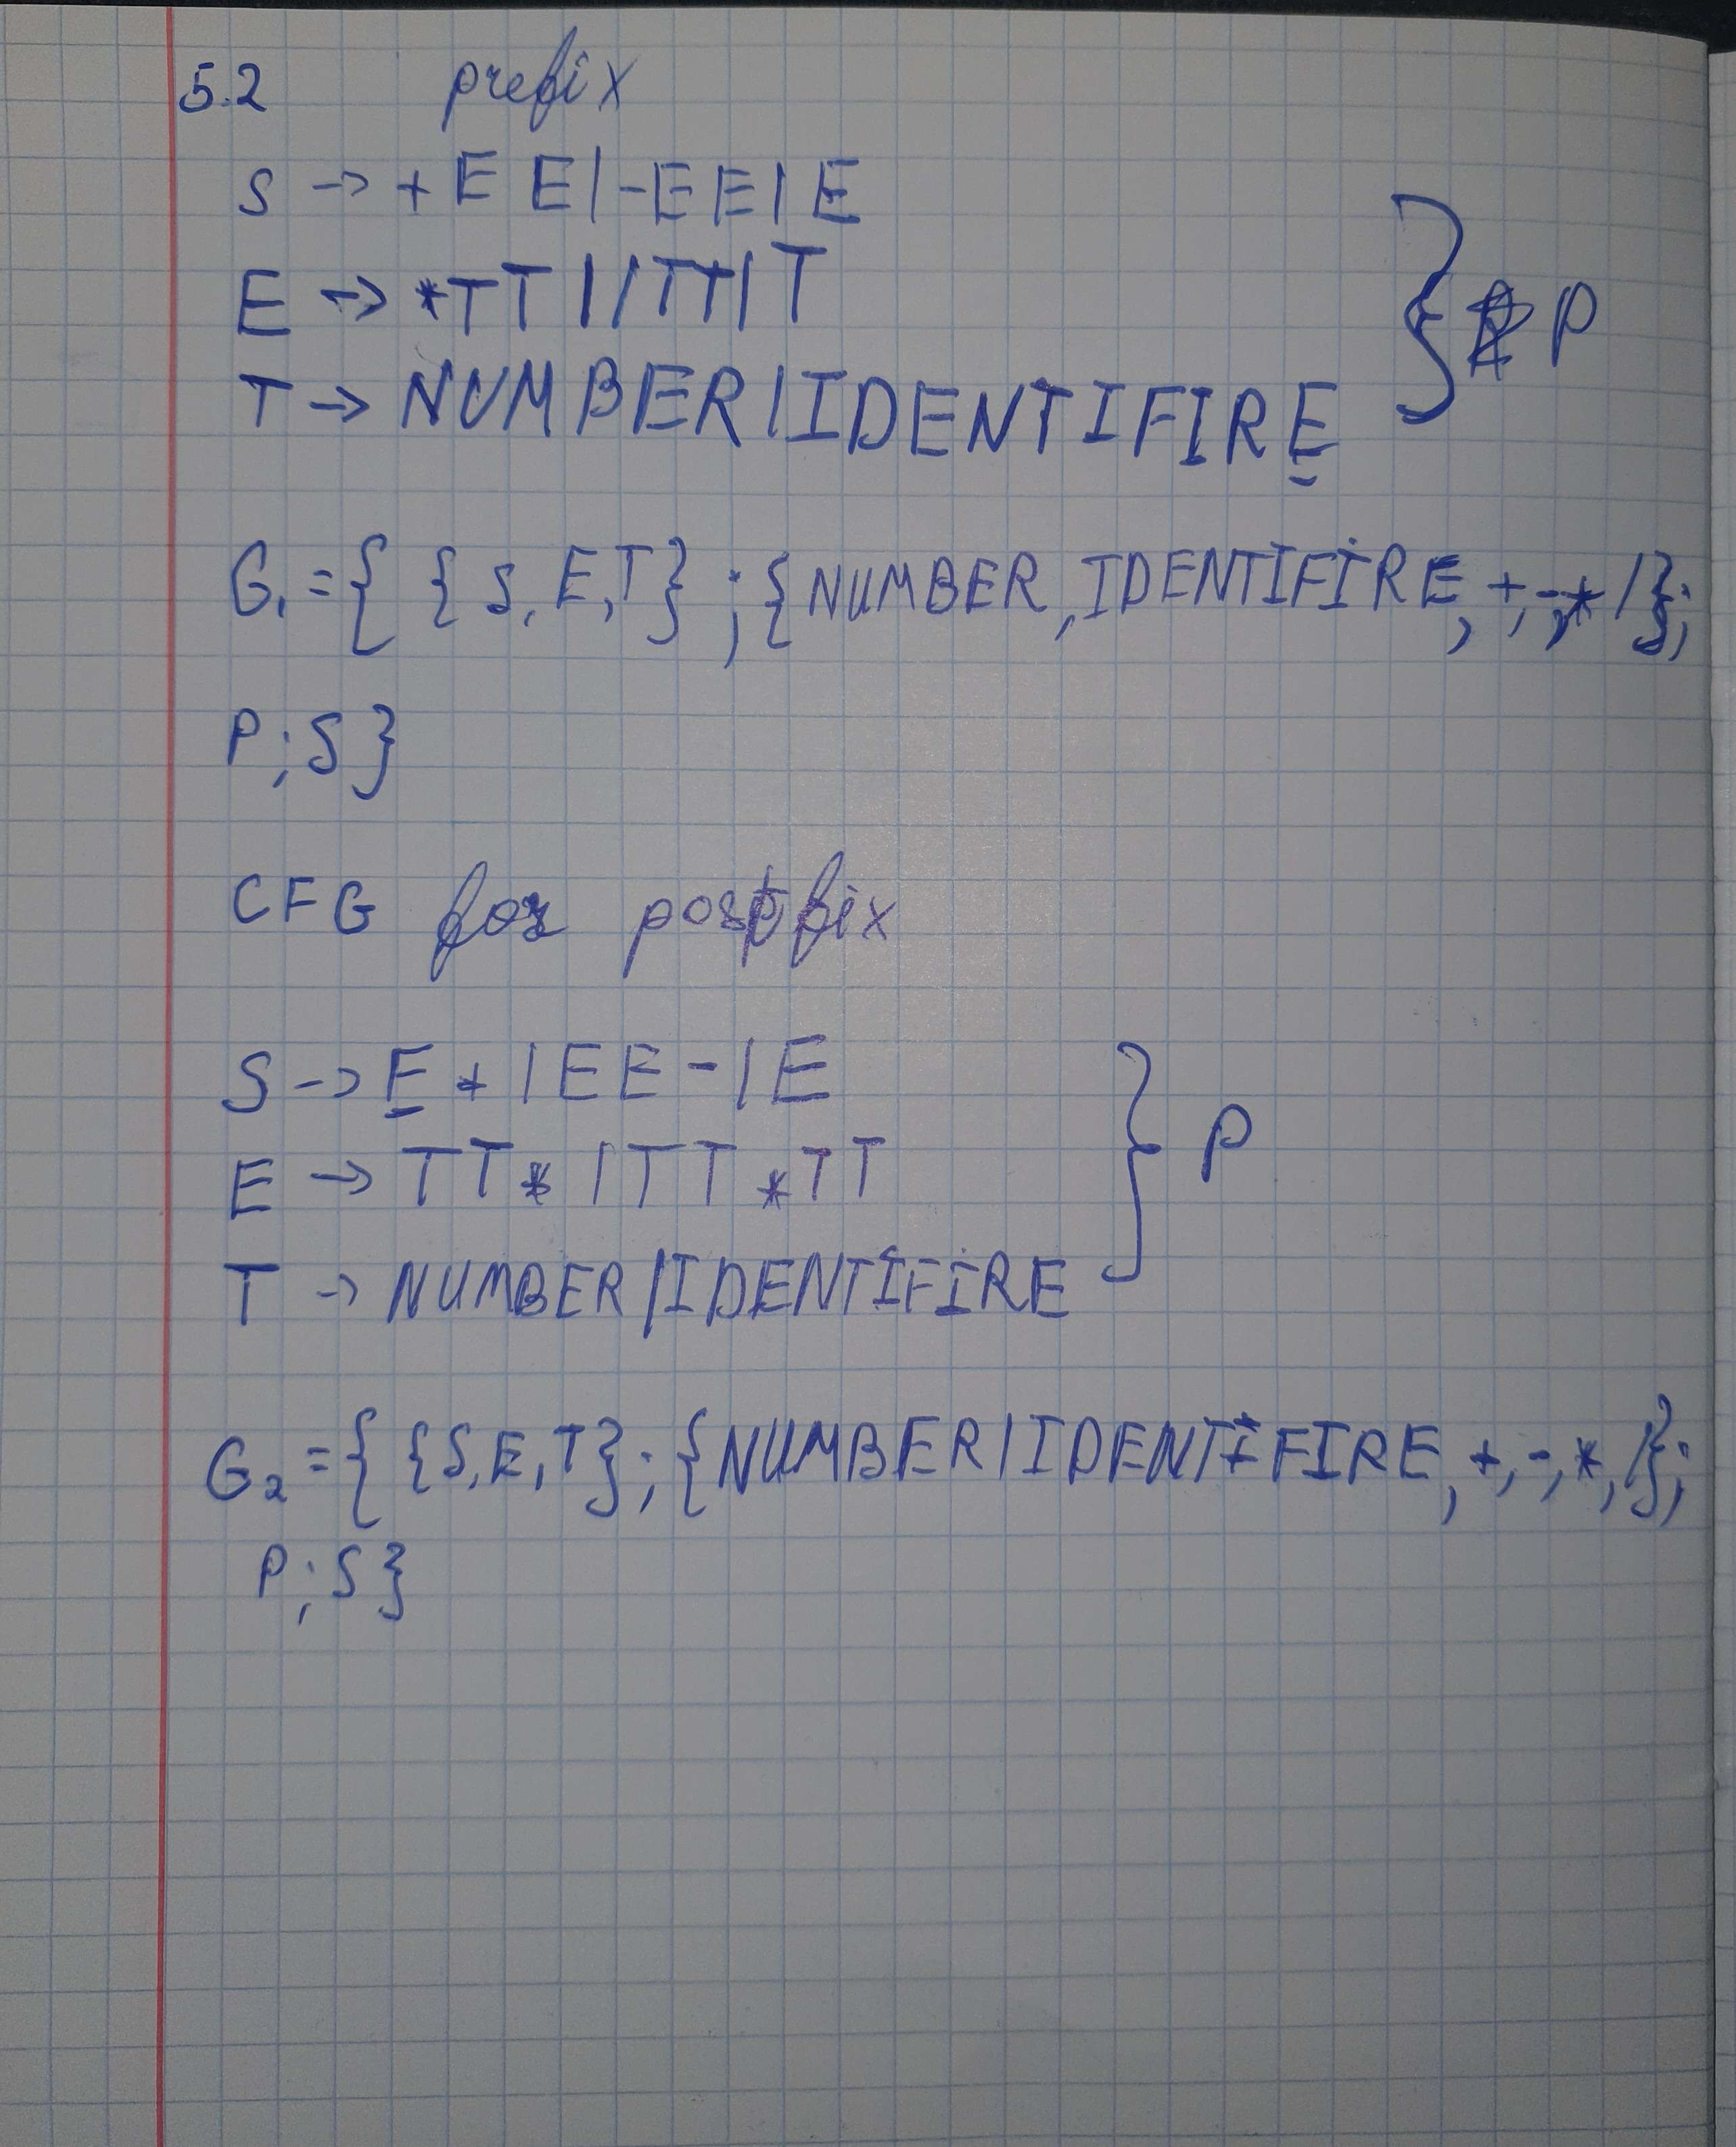 5.2 prefix
S → + E E | - E E | E
E → * T T | / T T | T
T → NUMBER | IDENTIFIRE
} P
G₁ = { { S, E, T } ; { NUMBER, IDENTIFIRE, +, -, * / } ;
P ; S }
CFG for postfix
S → E + | E E - | E
E → T T * | T T * T T
T → NUMBER | IDENTIFIRE
} P
G₂ = { { S, E, T } ; { NUMBER | IDENTIFIRE, +, -, *, / } ;
P ; S }